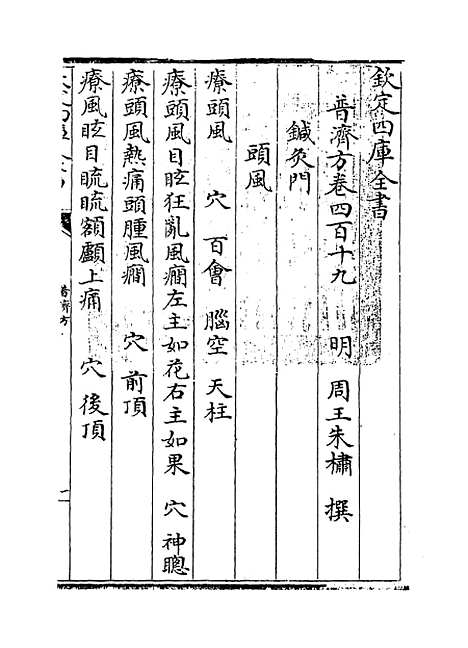 欽定四庫全書
普濟方卷四百十九 明 周王朱橚 撰
鍼灸門
頭風
療頭風 穴 百會 腦空 天柱
療頭風目眩狂亂風癎左主如花右主如果 穴 神聰
療頭風熱痛頭腫風癎 穴 前頂
療風眩目䀮䀮額顱上痛 穴 後頂
普濟方